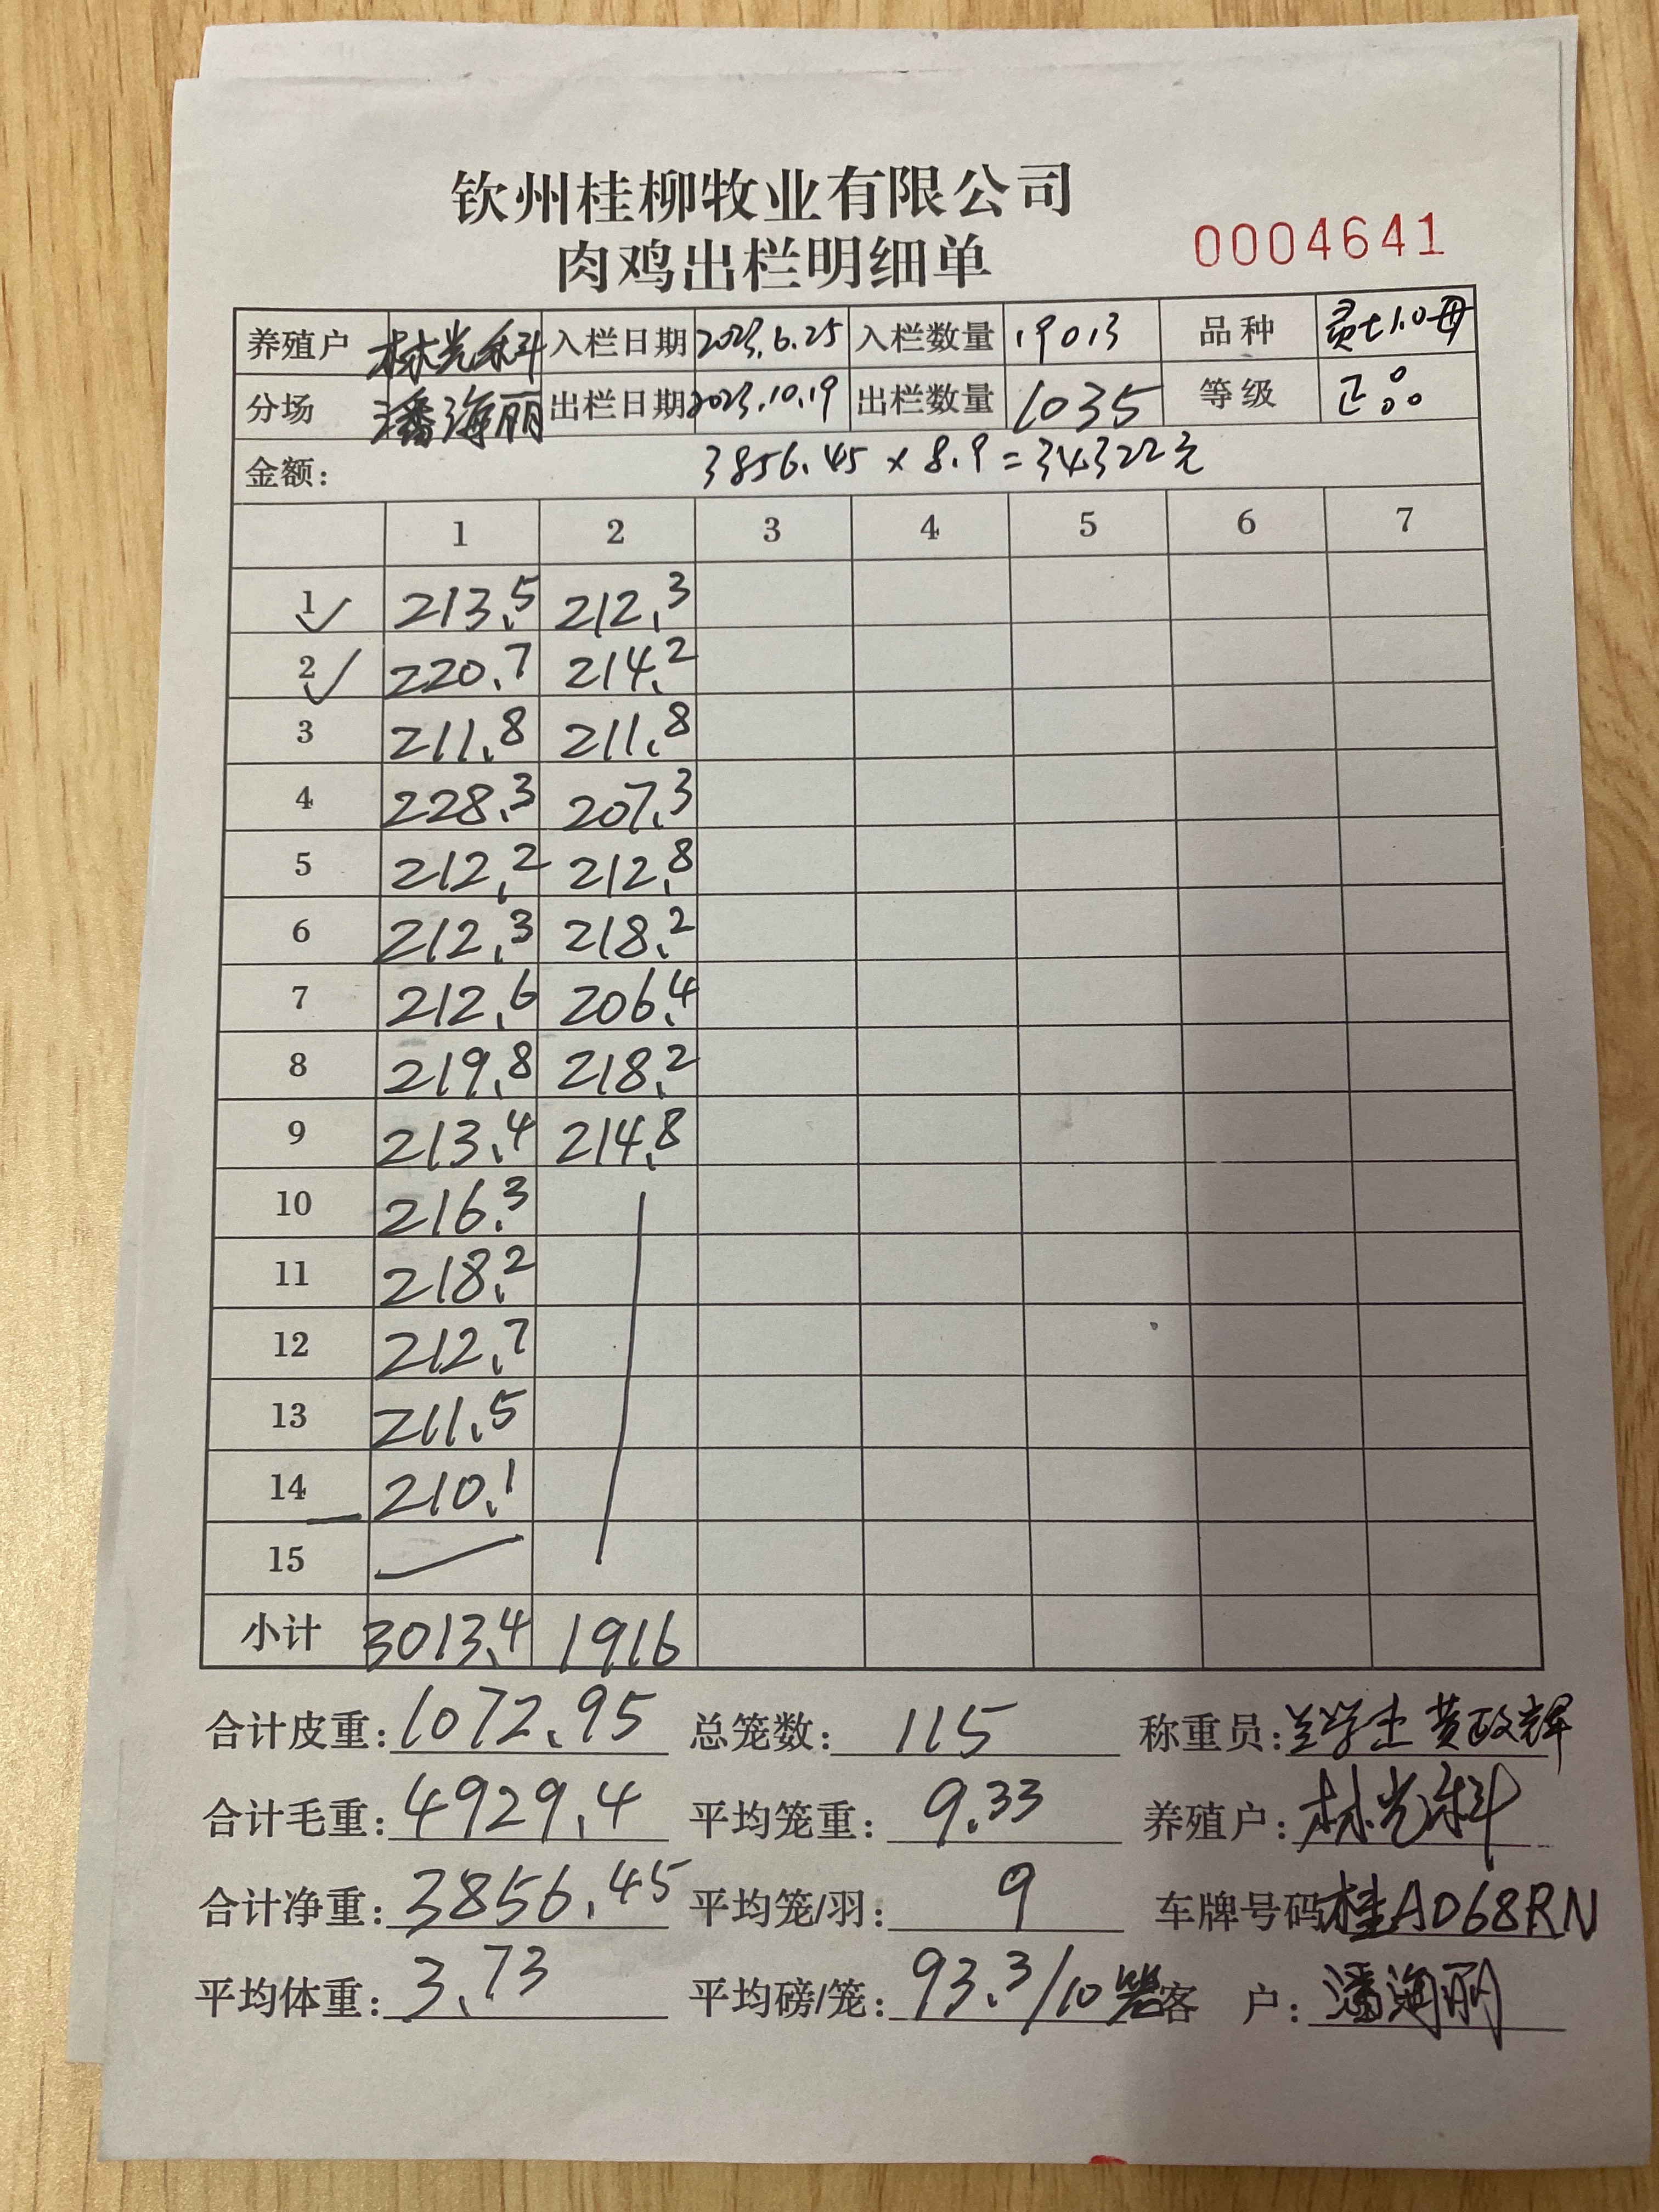 钦州桂柳牧业有限公司
肉鸡出栏明细单
0004641
养殖户 林光科 入栏日期 2023.6.25 入栏数量 19013 品种 灵七1.0母
分场 潘海丽 出栏日期 2023.10.19 出栏数量 1035 等级 正品
金额: 3856.45 × 8.9 = 34322元
1 2 3 4 5 6 7
1 213.5 212.3
2 220.7 214.2
3 211.8 211.8
4 228.3 207.3
5 212.2 212.8
6 212.3 218.2
7 212.6 206.4
8 219.8 218.2
9 213.4 214.8
10 216.3
11 218.2
12 212.7
13 211.5
14 210.1
15
小计 3013.4 1916
合计皮重: 1072.95 总笼数: 115 称重员: 黄政辉
合计毛重: 4929.4 平均笼重: 9.33 养殖户: 林光科
合计净重: 3856.45 平均笼/羽: 9 车牌号码 桂A068RN
平均体重: 3.73 平均磅/笼: 93.3/10 客户: 潘海丽